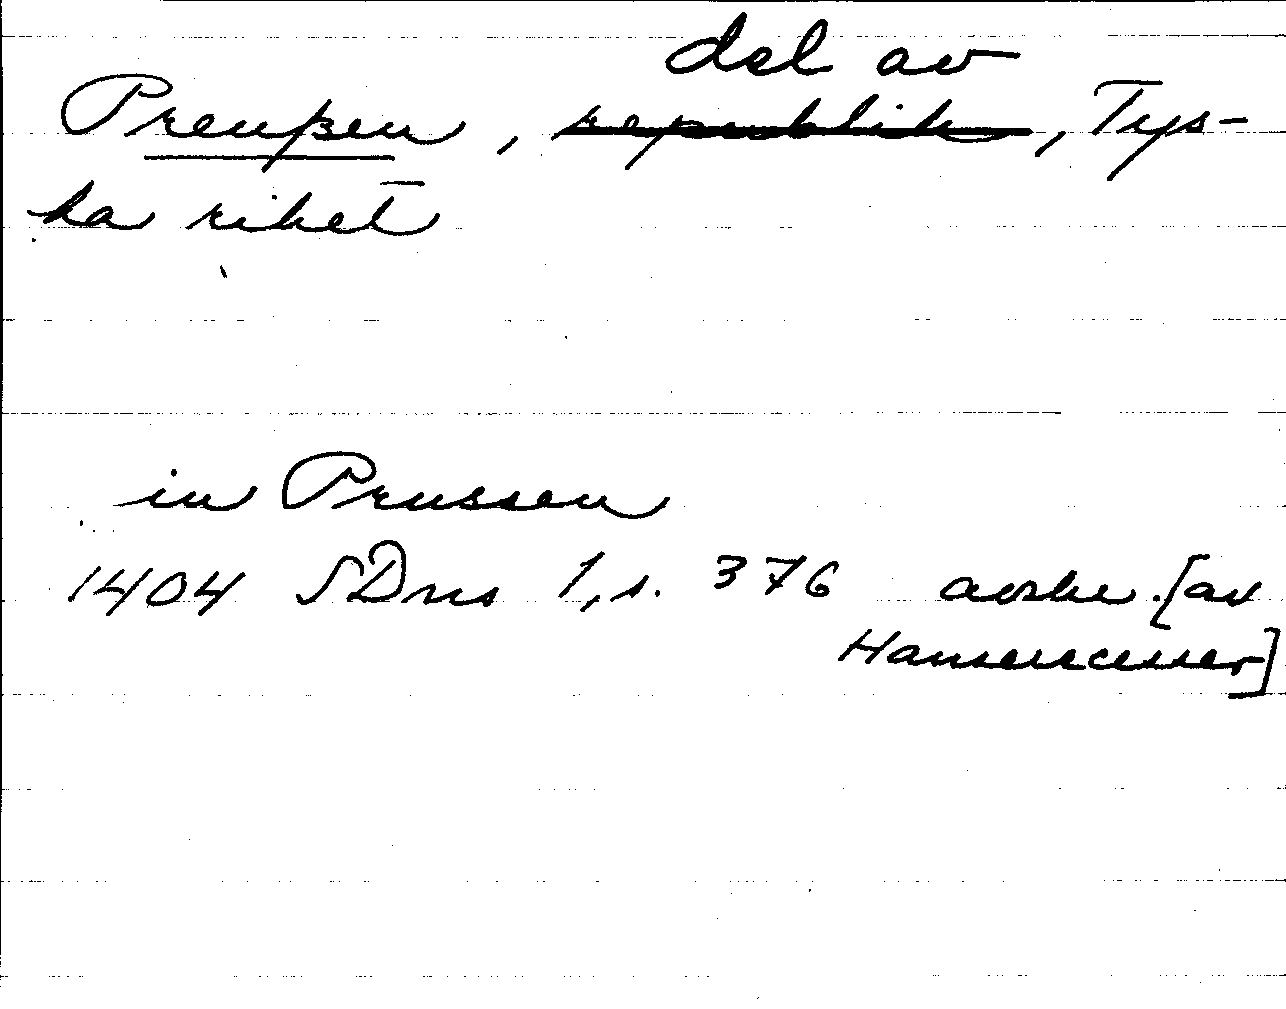 del av
Preußen, republik, Tys-
ka riket
in Prussen
1404 SDns 1, s. 376 avskr. [av
Hanserecesser]